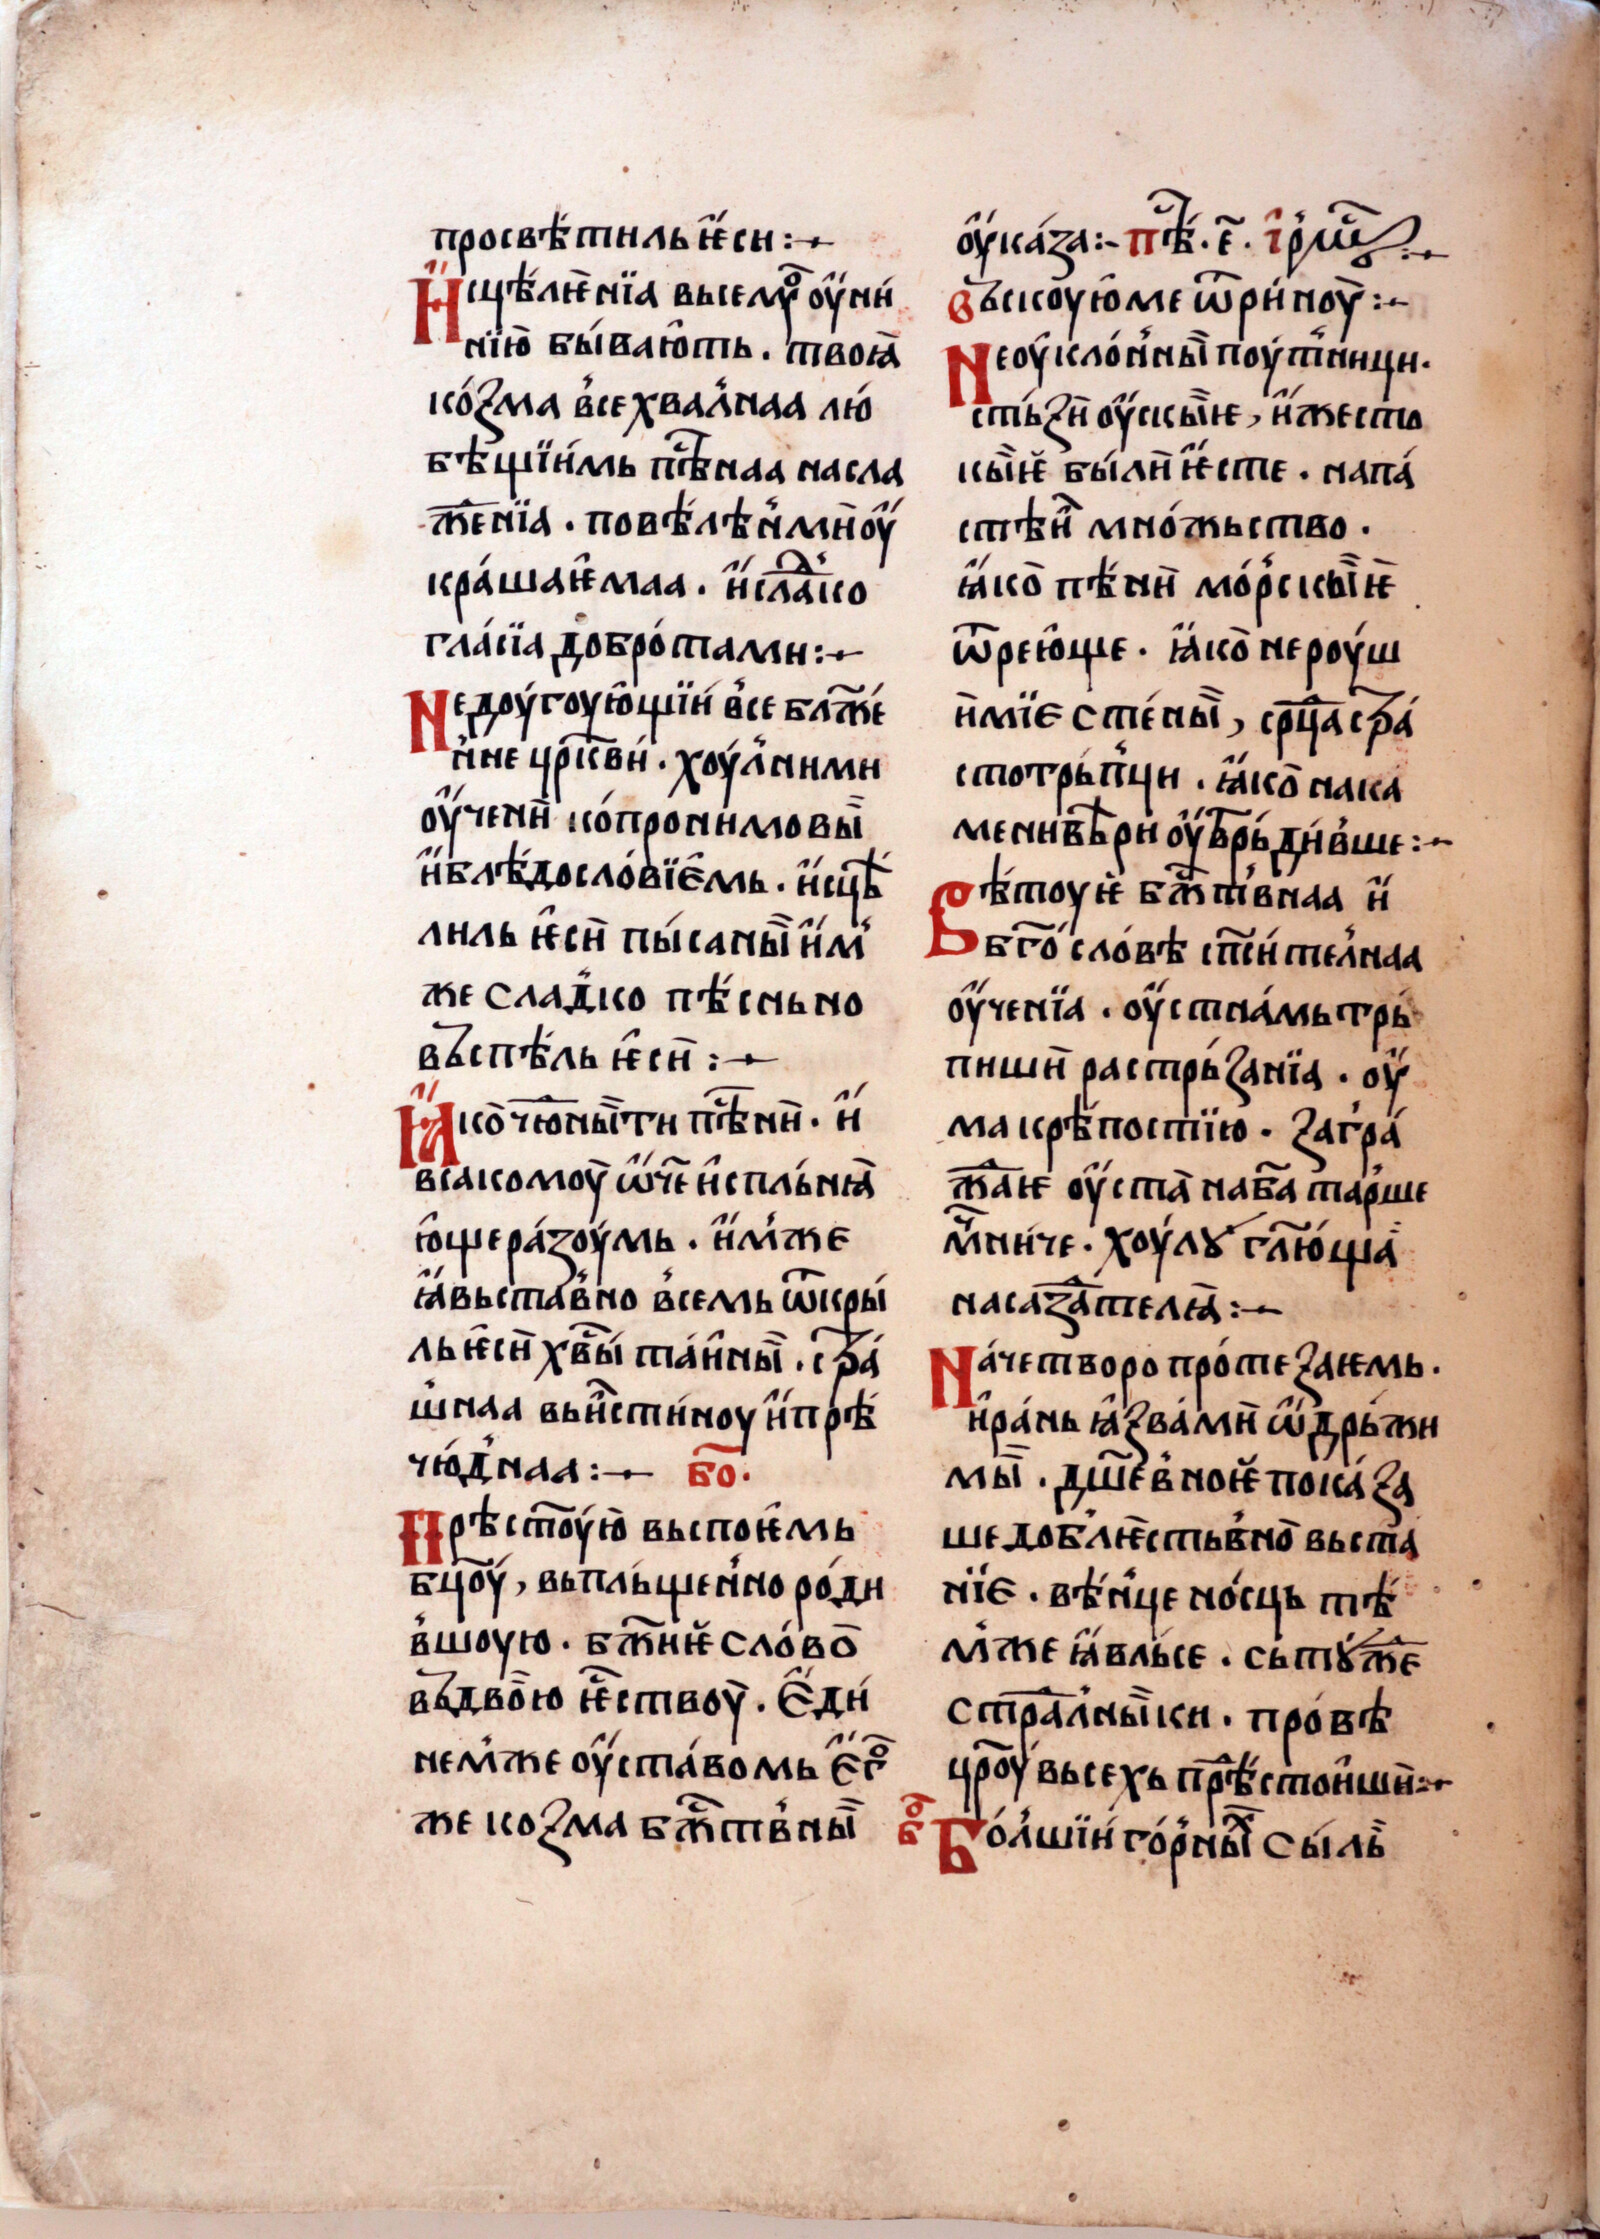 просвѣ́тиль ѥ҆си :·
И҆сцѣ́лѥнїа вьсемꙋ̑ ᲂу҆ни́
нїю̀ бы́ваю҆ть . твоꙗ̀
ко́ꙁма в҆сехвал҆наа лю́
бѣщїи́мь пѣ̑снаа насла
ж̑енїа . повѣ́лѣн҆мѝ ᲂу҆
кра́шаѥ҆маа . и҆ сла̑ко
гла́сїа добро́тами :·
Недоу́гоую҆щїи́ в҆се бла҃же́
н҆не цр҃кви́ . хоу́л҆ними
ᲂу҆ченѝ ко́про́нимовы̀
и҆ блѣ́досло́вїе҆мь . и҆сцѣ
лиль ѥ҆сѝ пы́саны̀ и҆м҆
же слад҆ко пѣ́сньно
въспѣ́ль ѥ҆сѝ :·
Ꙗ҆ко̀ чю̑ны̀ ти пѣ̑снѝ . и҆
всакомоу̀ ѿч҃е и҆спль́нꙗ̀
ю҆ще ра́ꙁоу́мь . и҆м҆же
ꙗ҆вьстав҆но в҆семь ѿкры́
ль ѥ҆сѝ хв҃ы́ та́и҆ны̀ . стра́
ш҆наа вьи҆сти́ноу и҆ прѣ́
чю́д҆наа :· бо҃ .
Прѣст҃оу́ю̀ вьспоѥ҆мь
бц҃оу́ , вьпль́щен҆но ро́ди
в҆шоую . бж҃иѥ̀ сло́во̀
въдво̀ю ѥ҆ствоу̀ . Е҆ди́
нем҆же ᲂу҆ста́вомь е҆го̑
же коꙁма бж҃ств҆ны̀
ᲂу҆ка́ꙁа :· пѣ̑ . е҃ . і҆рмѡ̑ :·
Въскоую҆ ме ѿри́ноу̀ :·
Неоу҆кло́н҆ны̀ поу́т҆ници .
стъ́ꙁѝ ᲂу҆скы̀ѥ , и҆ жесто
кы̀ѥ̀ бы́лѝ ѥ҆сте . напа́
стѣи҆ мно́жьство .
ꙗ҆ко̀ пѣ́нѝ мо́р҆скы̀ѥ̀
ѿрею҆ще . ꙗ҆ко̀ нероу́ш
и҆мїе сте́ны̀ , ср҃ца стра́
стотрь́п҆ци . ꙗ҆ко̀ на ка
мени вѣ̑ри ᲂу҆твръди́в҆ше :·
Вѣ́тоуѥ̀ бж҃ств҆наа и҆
бг҃о́сло́вѣ сп҃си́тел҆наа
ᲂу҆ченїа . ᲂу҆стна́мь трь́
пишѝ растрь́ꙁанїа . ᲂу҆
ма крѣ́постїю . ꙁагра́
ж̑аѥ ᲂу҆ста̀ наваторше
м҆ни́че . хоу́лꙋ гл҃ю́щаа҆
насаꙁ̑ателꙗ̀ :·
На́четворо про́теꙁаѥмь .
и҆ ра́нь ꙗ҆ꙁва́мѝ ѡ҆дрь́жи
мы̀ . дш҃ев҆ноѥ̀ пока́ꙁа
ше добл҆ѥ҆стьв҆но̀ вьста
нїе . вѣ́н҆це но́сць тѣ́
м҆же ꙗ҆вль́се . сь тꙋ́ж̑е
страдал҆ны̀ки . про́вѣ
цр҃оу́ вьсехь прѣ̑стои҆шѝ :·
бо҃
Бо́л҆шїи́ го́р҆ны̑ сы́ль̀